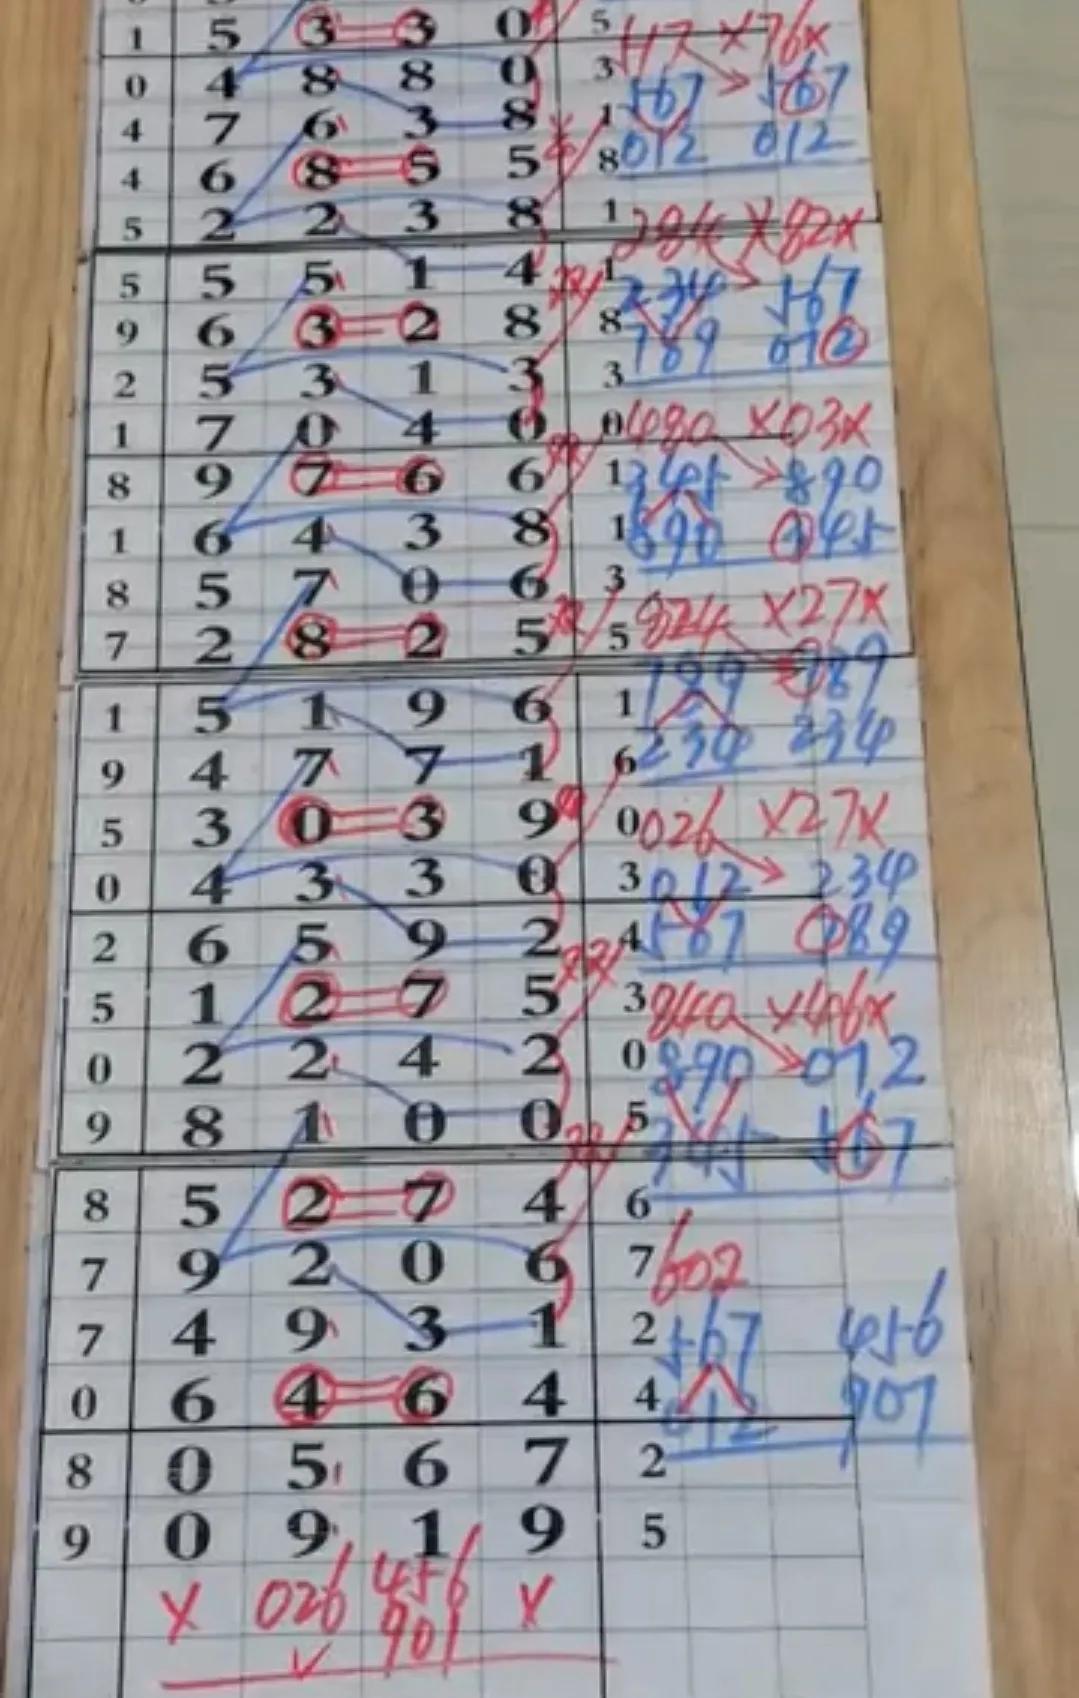 1 5 3 3 0 5 417 X76X
0 4 8 8 0 3 567 567
4 7 6 3 8 1 012 012
4 6 8 5 5 8
5 2 2 3 8 1 284 X82X
5 5 5 1 4 1 234 567
9 6 3 2 8 8 789 012
2 5 3 1 3 3
1 7 0 4 0 0 480 X03X
8 9 7 6 6 1 345 890
1 6 4 3 8 1 890 345
8 5 7 0 6 3 824 X27X
7 2 8 2 5 5 789 789
1 5 1 9 6 1 234 234
9 4 7 7 1 6
5 3 0 3 9 0 026 X27X
0 4 3 3 0 3 012 234
2 6 5 9 2 4 567 789
5 1 2 7 5 3 840 X46X
0 2 2 4 2 0 890 012
9 8 1 0 0 5 345 567
8 5 2 7 4 6
7 9 2 0 6 7 602
7 4 9 3 1 2 567 456
0 6 4 6 4 4 012 901
8 0 5 6 7 2
9 0 9 1 9 5
X 026 456 X
901